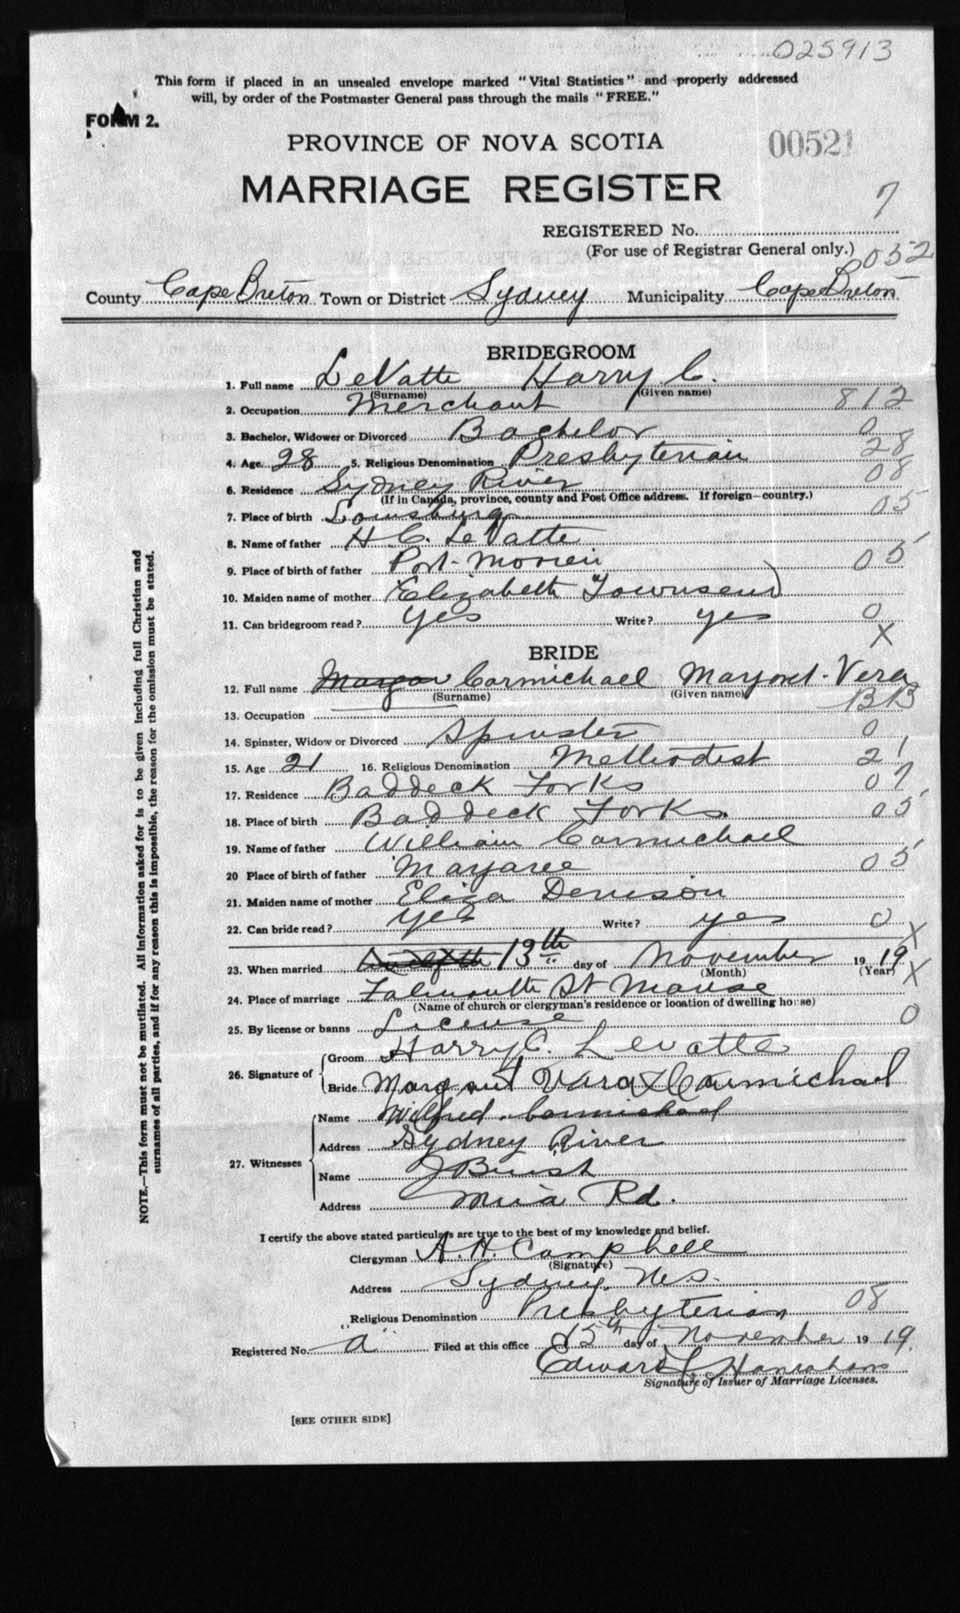 025913
This form if placed in an unsealed envelope marked "Vital Statistics" and properly addressed
will, by order of the Postmaster General pass through the mails "FREE."
FORM 2.
PROVINCE OF NOVA SCOTIA
00521
MARRIAGE REGISTER
7
REGISTERED No.
(For use of Registrar General only.)
052
County Cape Breton Town or District Sydney Municipality Cape Breton
BRIDEGROOM
1. Full name LeVatte Harry C.
(Surname) (Given name)
2. Occupation Merchant 812
3. Bachelor, Widower or Divorced Bachelor 0
4. Age 28 5. Religious Denomination Presbyterian 28
6. Residence Sydney River 08
(If in Canada, province, county and Post Office address. If foreign—country.)
7. Place of birth Louisburg 05
8. Name of father H C. LeVatte
9. Place of birth of father Port-Morien 05
10. Maiden name of mother Elizabeth Townsend
11. Can bridegroom read? Yes Write? yes 0
X
BRIDE
12. Full name Carmichael Margaret Vera
(Surname) (Given name)
13. Occupation
14. Spinster, Widow or Divorced Spinster 0
15. Age 21 16. Religious Denomination Methodist 21
17. Residence Baddeck Forks 07
18. Place of birth Baddeck Forks. 05
19. Name of father William Carmichael
20 Place of birth of father Margaree 05
21. Maiden name of mother Eliza Denison
22. Can bride read? Yes Write? yes 0
X
23. When married Twelfth 13th day of November 1919
(Month) (Year)
24. Place of marriage Falmouth St Manse X
(Name of church or clergyman's residence or location of dwelling house)
25. By license or banns License 0
26. Signature of
Groom Harry C. Levatte
Bride Margaret Vera Carmichael
27. Witnesses
Name Wilfred Carmichael
Address Sydney River
Name J Burst
Address Mira Rd.
I certify the above stated particulars are true to the best of my knowledge and belief.
Clergyman A. H. Campbell
(Signature)
Address Sydney, N.S.
Religious Denomination Presbyterian 08
Registered No. "a" Filed at this office 15th day of November 1919.
Edward Hanrahan
Signature of Issuer of Marriage Licenses.
[SEE OTHER SIDE]
NOTE.—This form must not be mutilated. All information asked for is to be given including full Christian and
surnames of all parties, and if for any reason this is impossible, the reason for the omission must be stated.